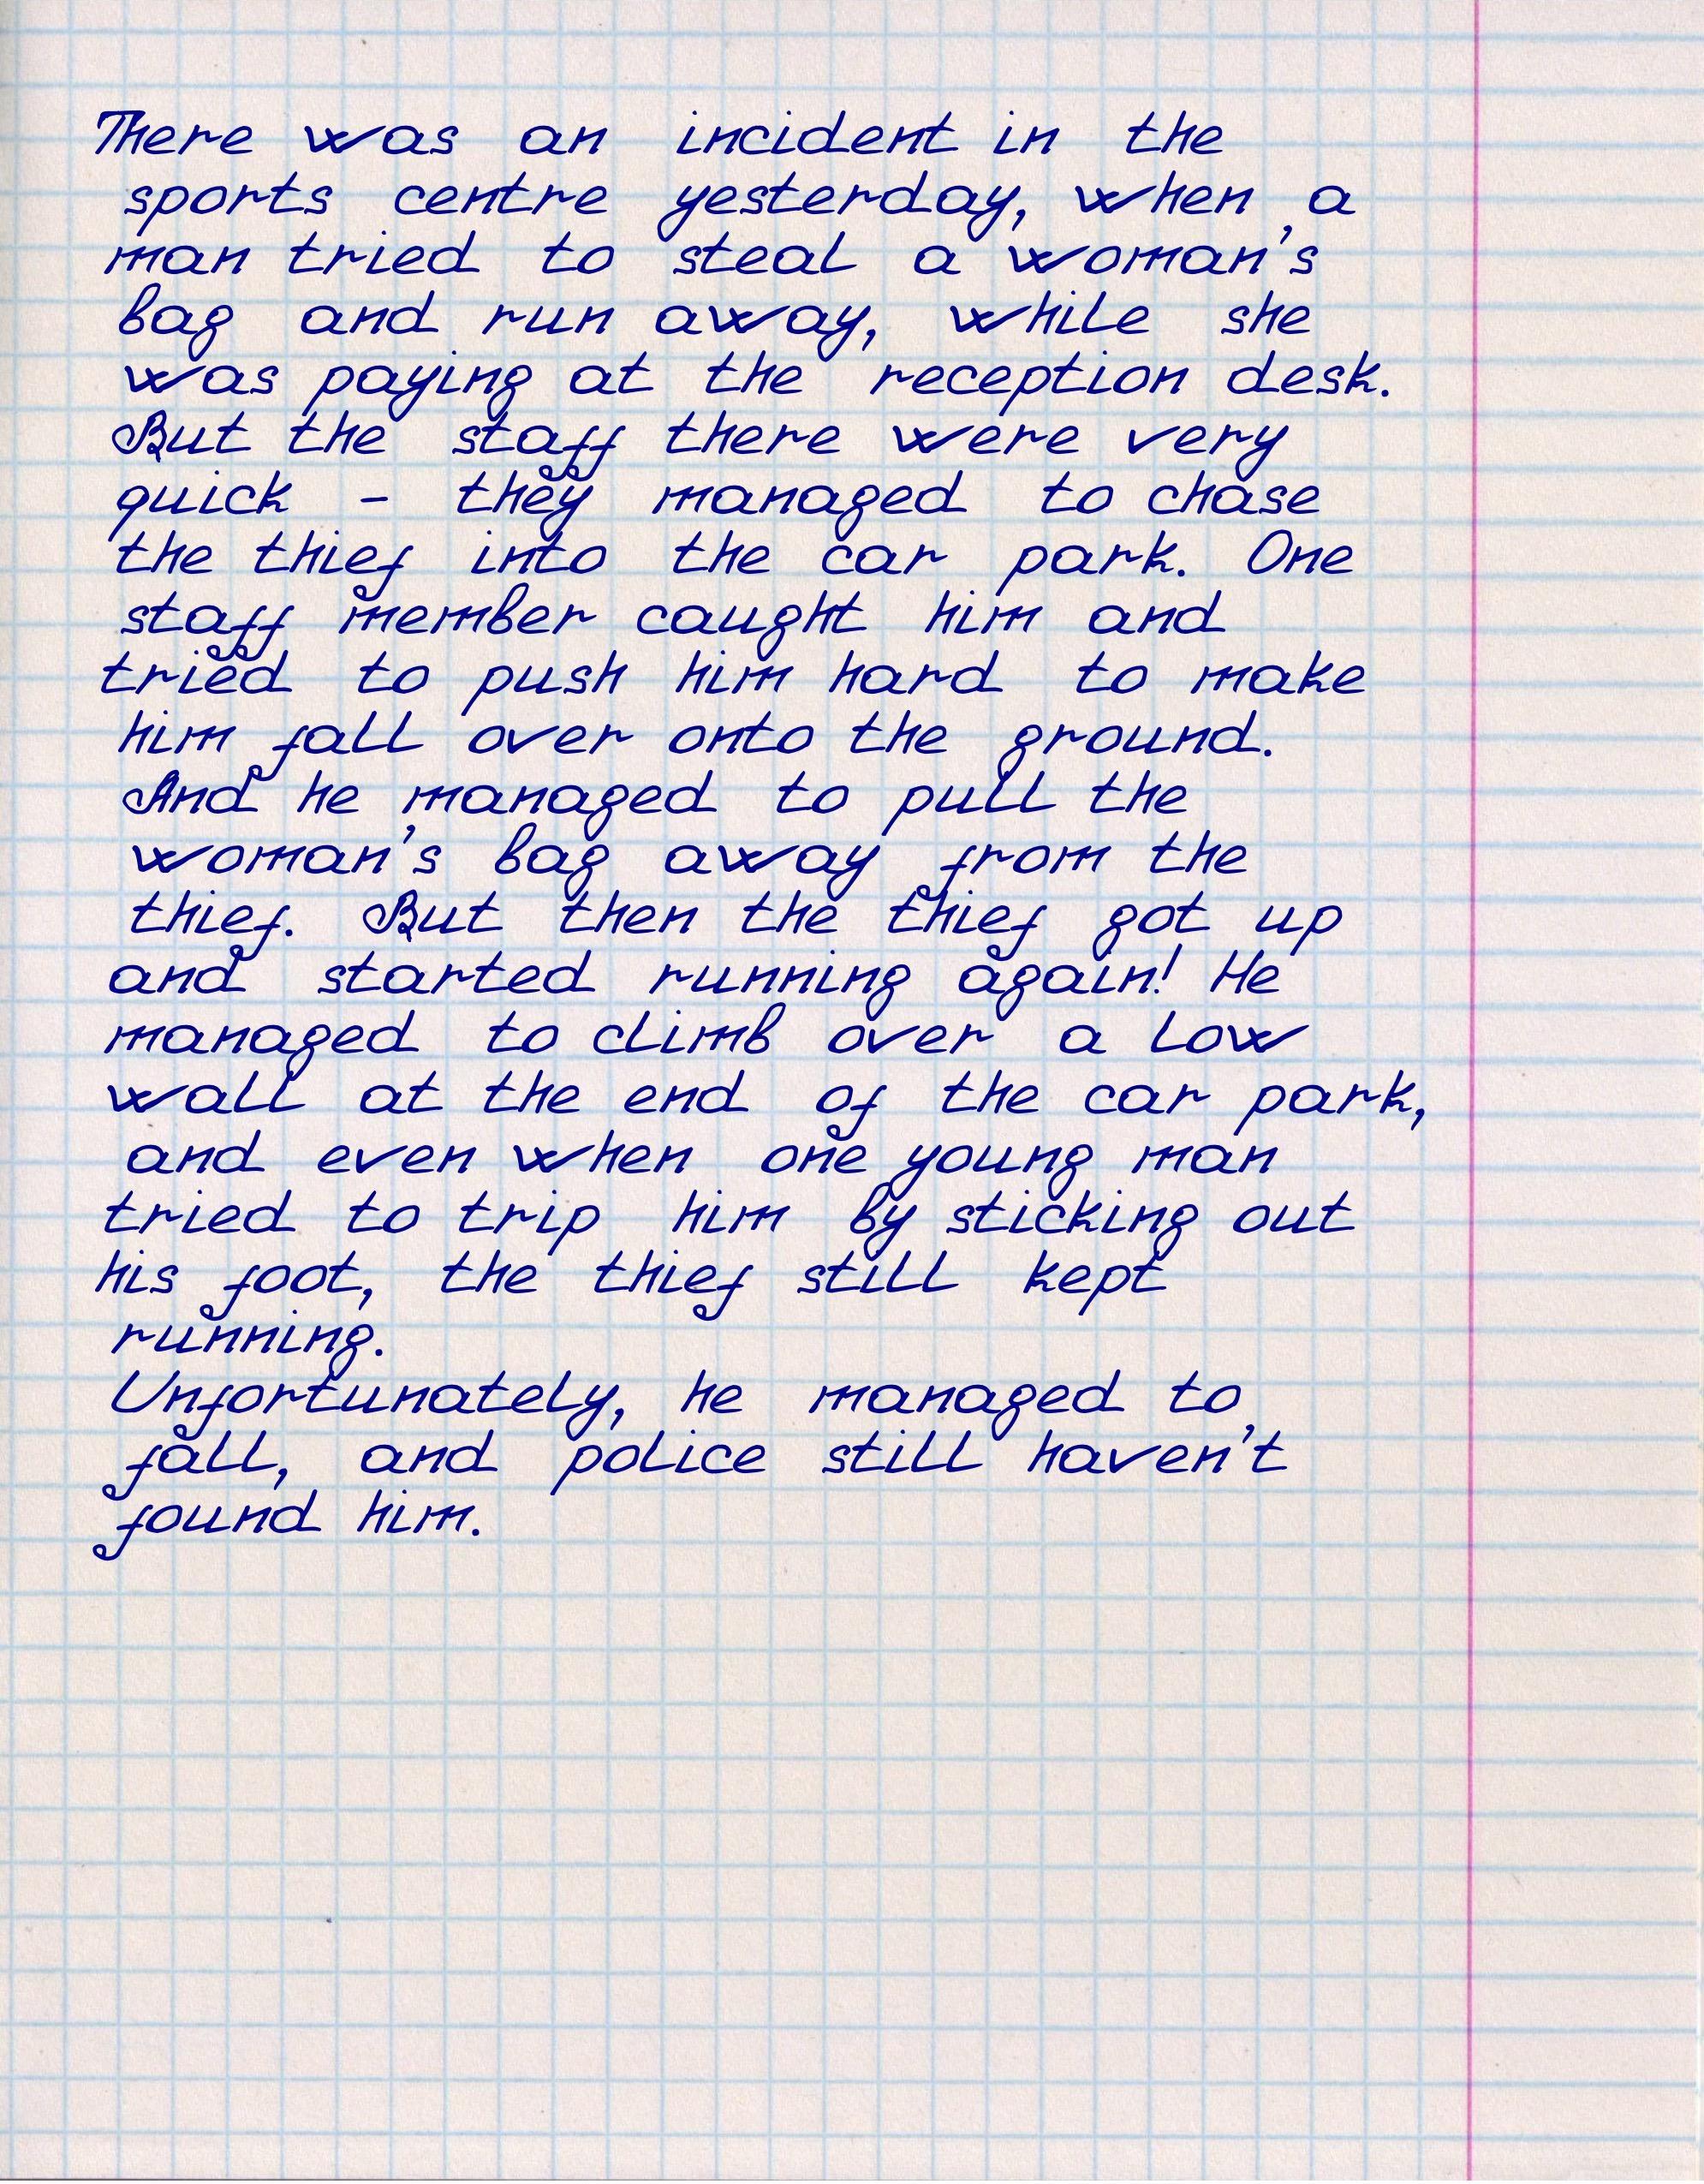 There was an incident in the
sports centre yesterday, when a
man tried to steal a woman's
bag and run away, while she
was paying at the reception desk.
But the staff there were very
quick - they managed to chase
the thief into the car park. One
staff member caught him and
tried to push him hard to make
him fall over onto the ground.
And he managed to pull the
woman's bag away from the
thief. But then the thief got up
and started running again! He
managed to climb over a low
wall at the end of the car park,
and even when one young man
tried to trip him by sticking out
his foot, the thief still kept
running.
Unfortunately, he managed to
fall, and police still haven't
found him.